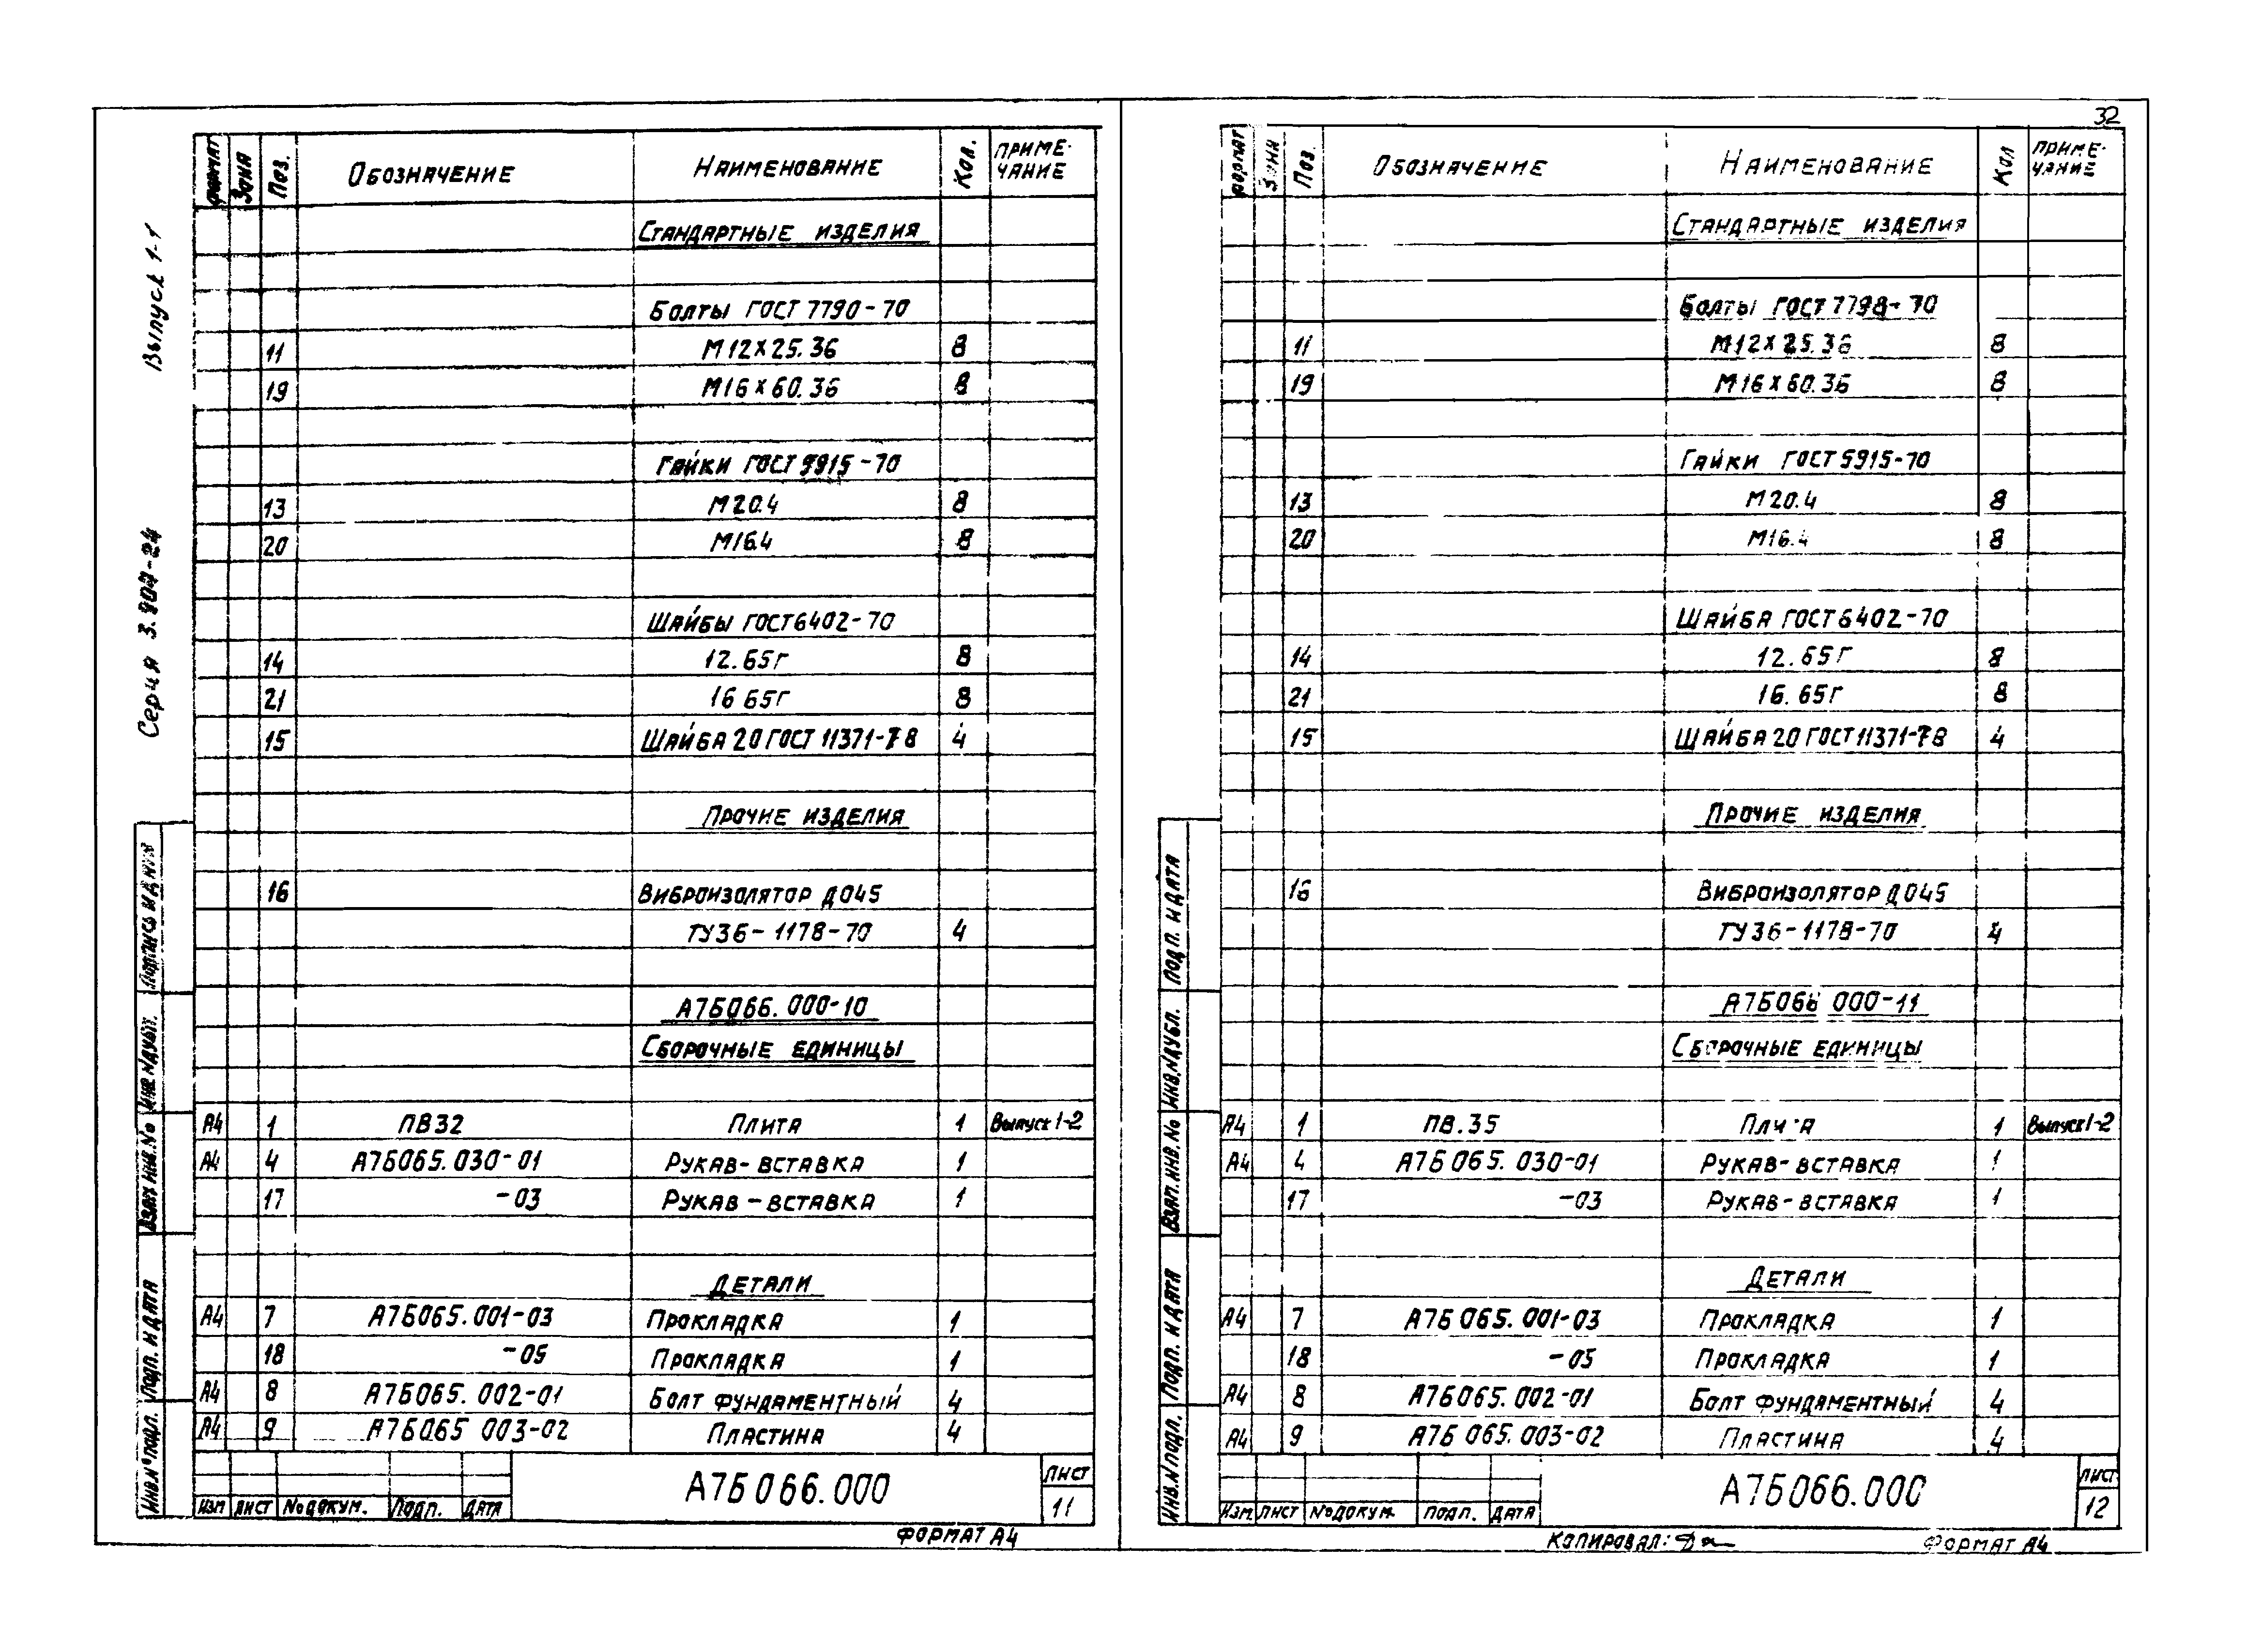 32
Выпуск 1-1
Серия 3.904-24
Формат Зона Поз. Обозначение Наименование Кол. Приме-
чание
Стандартные изделия
Болты ГОСТ 7790-70
11 М12х25.36 8
19 М16х60.36 8
Гайки ГОСТ 5915-70
13 М20.4 8
20 М16.4 8
Шайбы ГОСТ 6402-70
14 12.65Г 8
21 16 65Г 8
15 Шайба 20 ГОСТ 11371-78 4
Прочие изделия
16 Виброизолятор Д045
ТУ36-1178-70 4
А7Б066.000-10
Сборочные единицы
А4 1 ПВ32 Плита 1 Выпуск 1-2
А4 4 А7Б065.030-01 Рукав-вставка 1
17 -03 Рукав-вставка 1
Детали
А4 7 А7Б065.001-03 Прокладка 1
18 -05 Прокладка 1
А4 8 А7Б065.002-01 Болт фундаментный 4
А4 9 А7Б065 003-02 Пластина 4
Изм Лист №докум. Подп. Дата
А7Б066.000
Лист
11
Формат А4
Подпись и дата
Инв.№дубл.
Взам.инв.№
Подп. и дата
Инв.№подл.
Формат Зона Поз. Обозначение Наименование Кол Приме-
чание
Стандартные изделия
Болты ГОСТ 7798-70
11 М12х25.36 8
19 М16х60.36 8
Гайки ГОСТ 5915-70
13 М20.4 8
20 М16.4 8
Шайба ГОСТ 6402-70
14 12.65Г 8
21 16.65Г 8
15 Шайба 20 ГОСТ 11371-78 4
Прочие изделия
16 Виброизолятор Д045
ТУ36-1178-70 4
А7Б066 000-11
Сборочные единицы
А4 1 ПВ.35 Плита 1 Выпуск 1-2
А4 4 А7Б065.030-01 Рукав-вставка 1
17 -03 Рукав-вставка 1
Детали
А4 7 А7Б065.001-03 Прокладка 1
18 -05 Прокладка 1
А4 8 А7Б065.002-01 Болт фундаментный 4
А4 9 А7Б065.003-02 Пластина 4
Изм. Лист №докум. Подп. Дата
А7Б066.000
Лист
12
Копировал:
Формат А4
Подп. и дата
Инв.№дубл.
Взам.инв.№
Подп. и дата
Инв.№подл.